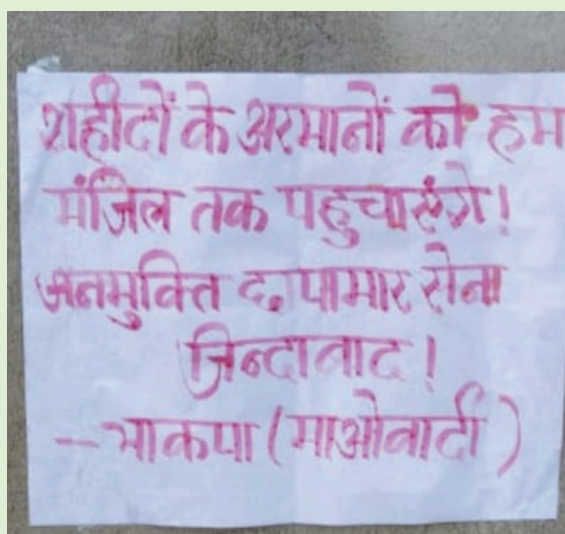 शहीदों के अरमानों को हम
मंजिल तक पहुचाएंगे!
जनमुक्ति छापामार सेना
जिन्दाबाद!
- भाकपा (माओवादी)